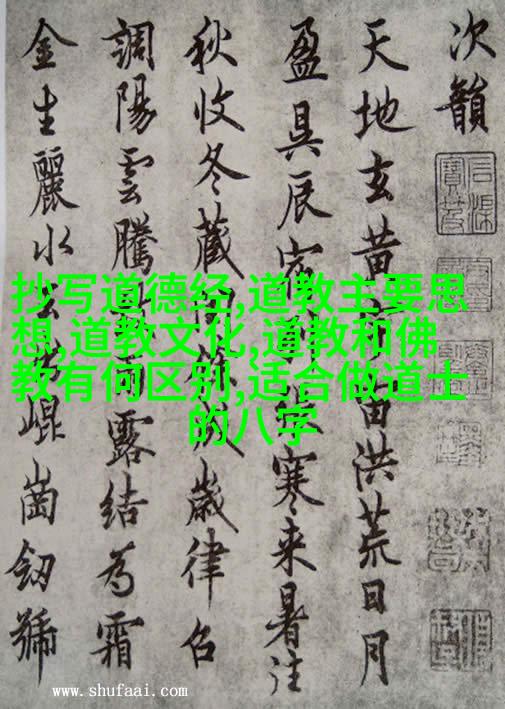 次韻
天地玄黄宙洪荒日月
盈昃辰宿寒来暑往
秋收冬藏閏成歲律召
調陽雲騰雨露結為霜
金生麗水崑崗劒號
抄写道德经,道教主要思
想,道教文化,道教和佛
教有何区别,适合做道士
的八字
www.shufaai.com